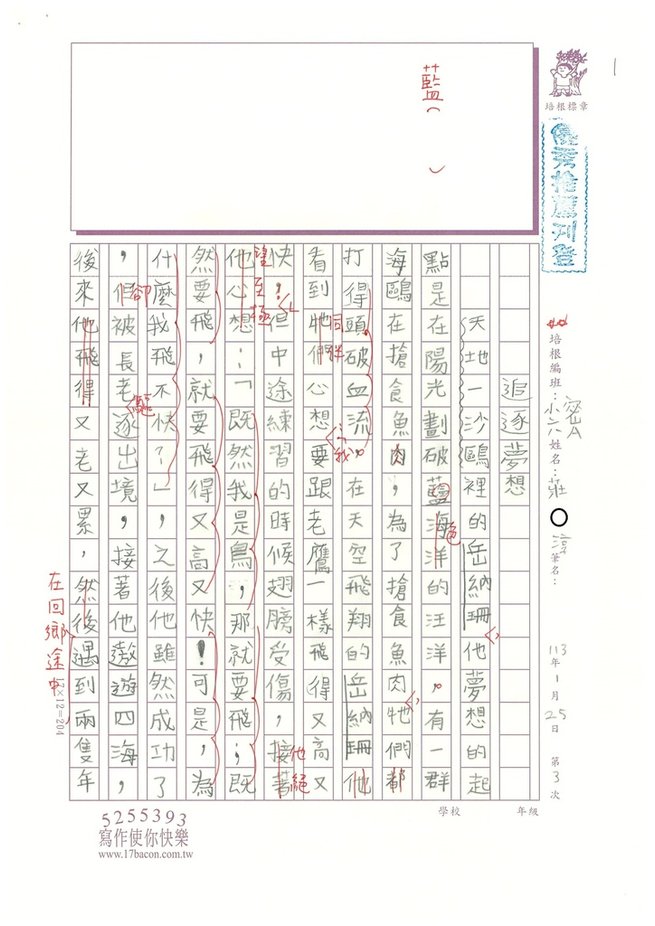 1
培根標章
優秀推薦刊登
藍
培根編班：小六密A 姓名：莊○淳 筆名：
113年1月25日 第3次
追逐夢想
天地一沙鷗裡的岳納珊他夢想的起
點是在陽光劃破藍海洋的汪洋。有一群
色
海鷗在搶食魚肉，為了搶食魚肉牠們都
打得頭破血流。在天空飛翔的岳納珊他
我
看到牠們心想要跟老鷹一樣飛得又高又
同群
快，但中途練習的時候翅膀受傷，接著
他絕
望至極
他心想：「既然我是鳥，那就要飛；既
然要飛，就要飛得又高又快！可是，為
什麼我飛不快？」，之後他雖然成功了
，但被長老逐出境，接著他遨遊四海，
卻
驅
後來他飛得又老又累，然後遇到兩隻年
在回鄉途中
17×12=204
5255393
寫作使你快樂
www.17bacon.com.tw
學校 年級